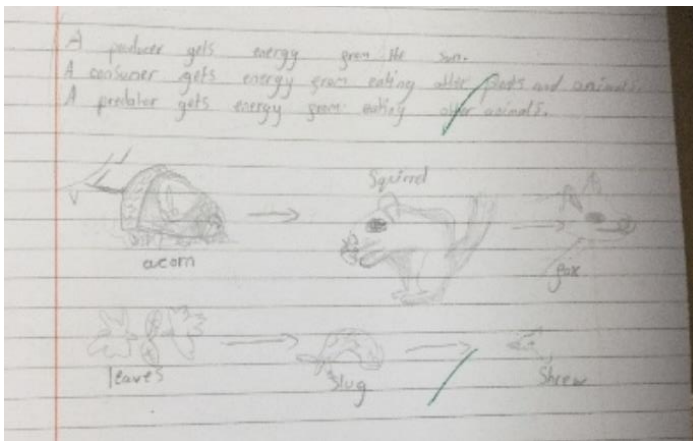 A producer gets energy from the sun.
A consumer gets energy from eating other plants and animals.
A predator gets energy from eating other animals.
Squirrel
acorn
fox
leaves
slug
Shrew